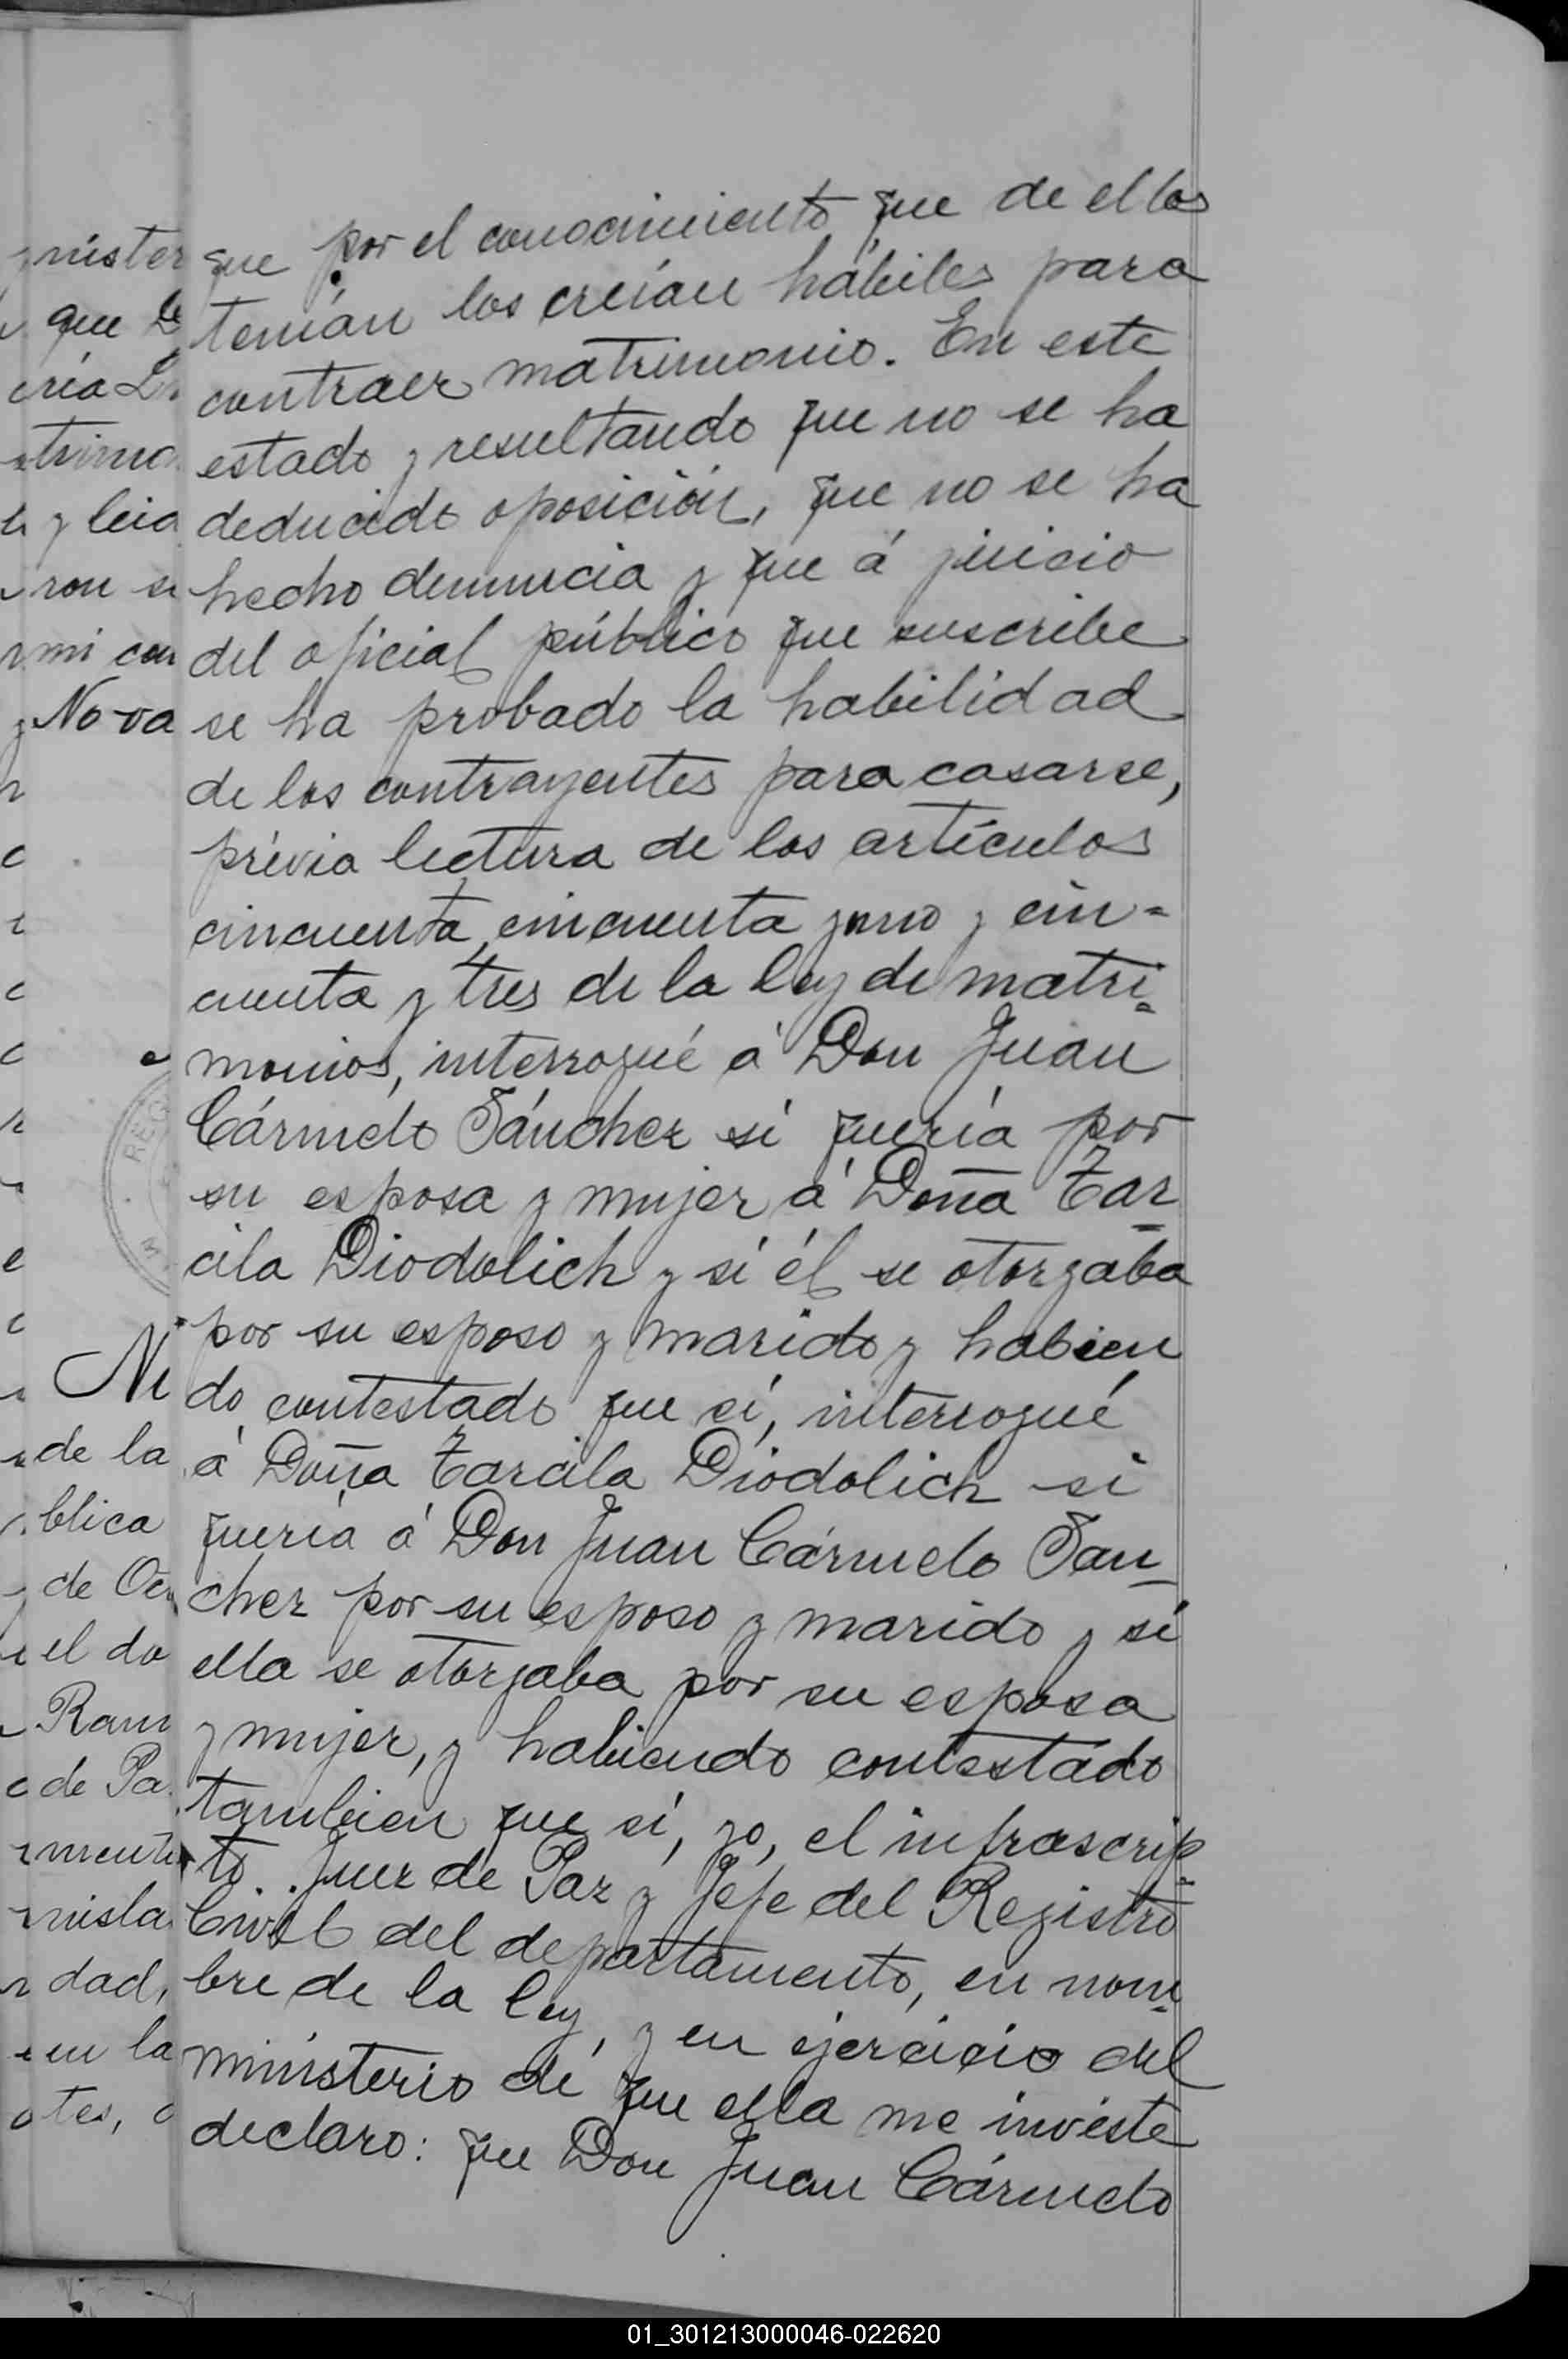 que por el conocimiento que de ellos
tenían los creían hábiles para
contraer matrimonio. En este
estado y resultando que no se ha
deducido oposición, que no se ha
hecho denuncia y que á juicio
del oficial público que suscribe
se ha probado la habilidad
de los contrayentes para casarse,
prévia lectura de los artículos
cincuenta, cincuenta y uno y cin=
cuenta y tres de la ley de matri=
monios, interrogué á Don Juan
Cármelo Sánchez si quería por
su esposa y mujer á Doña Tar
cila Diodolich y si él se otorgaba
por su esposo y marido y habien
do contestado que sí, interrogué
á Doña Tarcila Diodolich si
quería á Don Juan Cármelo San
chez por su esposo y marido y si
ella se otorgaba por su esposa
y mujer, y habiendo contestado
tambien que sí, yo, el infrascrip=
to Juez de Paz y Jefe del Registro
Civil del departamento, en nom=
bre de la ley, y en ejercicio del
ministerio de que ella me inviste
declaro: que Don Juan Cármelo
que
trimo
y leia
ron
mi con
Nova
REG
de la
blica
de
el do
Ram
de Pa
dad,
en la
01_301213000046-022620